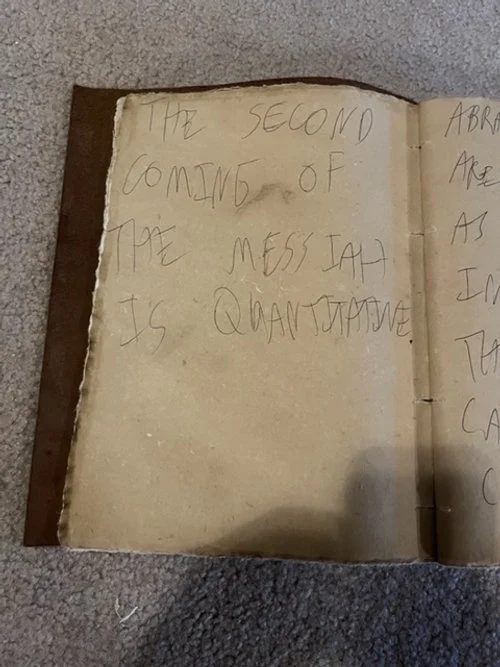 THE SECOND
COMING OF
THE MESSIAH
IS QUANTITATIVE
ARE
AS